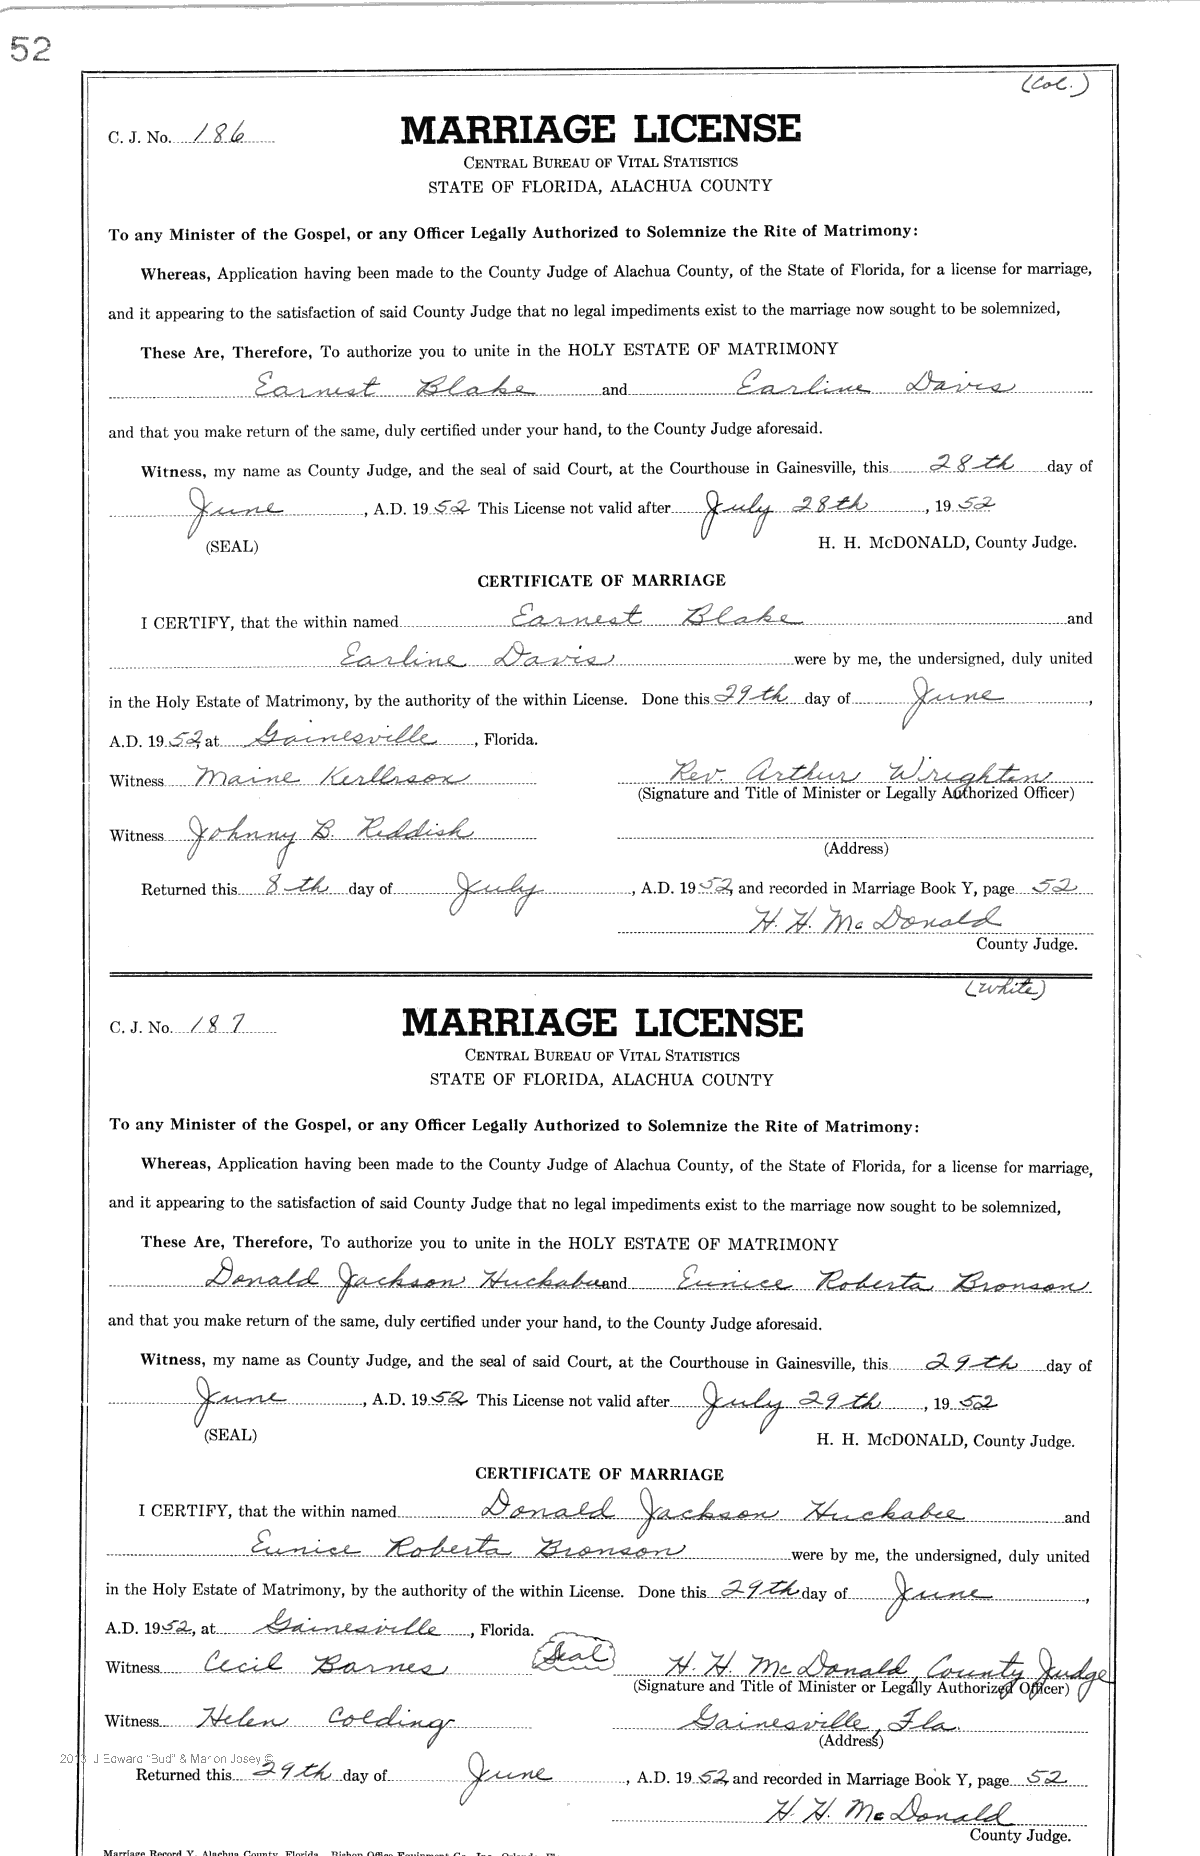 52
(Col.)
C. J. No. 186 MARRIAGE LICENSE
CENTRAL BUREAU OF VITAL STATISTICS
STATE OF FLORIDA, ALACHUA COUNTY
To any Minister of the Gospel, or any Officer Legally Authorized to Solemnize the Rite of Matrimony:
Whereas, Application having been made to the County Judge of Alachua County, of the State of Florida, for a license for marriage,
and it appearing to the satisfaction of said County Judge that no legal impediments exist to the marriage now sought to be solemnized,
These Are, Therefore, To authorize you to unite in the HOLY ESTATE OF MATRIMONY
Earnest Blake and Earline Davis
and that you make return of the same, duly certified under your hand, to the County Judge aforesaid.
Witness, my name as County Judge, and the seal of said Court, at the Courthouse in Gainesville, this 28th day of
June, A.D. 1952 This License not valid after July 28th, 1952
(SEAL) H. H. McDONALD, County Judge.
CERTIFICATE OF MARRIAGE
I CERTIFY, that the within named Earnest Blake and
Earline Davis were by me, the undersigned, duly united
in the Holy Estate of Matrimony, by the authority of the within License. Done this 29th day of June,
A.D. 1952, at Gainesville, Florida.
Witness Maine Rev. Arthur Wrighten
(Signature and Title of Minister or Legally Authorized Officer)
Witness Johnny B. Reddish
(Address)
Returned this 8th day of July, A.D. 1952, and recorded in Marriage Book Y, page 52
H. H. McDonald
County Judge.
(White)
C. J. No. 187 MARRIAGE LICENSE
CENTRAL BUREAU OF VITAL STATISTICS
STATE OF FLORIDA, ALACHUA COUNTY
To any Minister of the Gospel, or any Officer Legally Authorized to Solemnize the Rite of Matrimony:
Whereas, Application having been made to the County Judge of Alachua County, of the State of Florida, for a license for marriage,
and it appearing to the satisfaction of said County Judge that no legal impediments exist to the marriage now sought to be solemnized,
These Are, Therefore, To authorize you to unite in the HOLY ESTATE OF MATRIMONY
Donald Jackson Huckabee and Eunice Roberta Bronson
and that you make return of the same, duly certified under your hand, to the County Judge aforesaid.
Witness, my name as County Judge, and the seal of said Court, at the Courthouse in Gainesville, this 29th day of
June, A.D. 1952 This License not valid after July 29th, 1952
(SEAL) H. H. McDONALD, County Judge.
CERTIFICATE OF MARRIAGE
I CERTIFY, that the within named Donald Jackson Huckabee and
Eunice Roberta Bronson were by me, the undersigned, duly united
in the Holy Estate of Matrimony, by the authority of the within License. Done this 29th day of June,
A.D. 1952, at Gainesville, Florida.
Witness Cecil Barnes Seal H. H. McDonald, County Judge
(Signature and Title of Minister or Legally Authorized Officer)
Witness Helen Colding Gainesville, Fla.
(Address)
J Edward "Bud" & Marion Josey ©
Returned this 29th day of June, A.D. 1952, and recorded in Marriage Book Y, page 52
H. H. McDonald
County Judge.
Marriage Record Y, Alachua County, Florida.